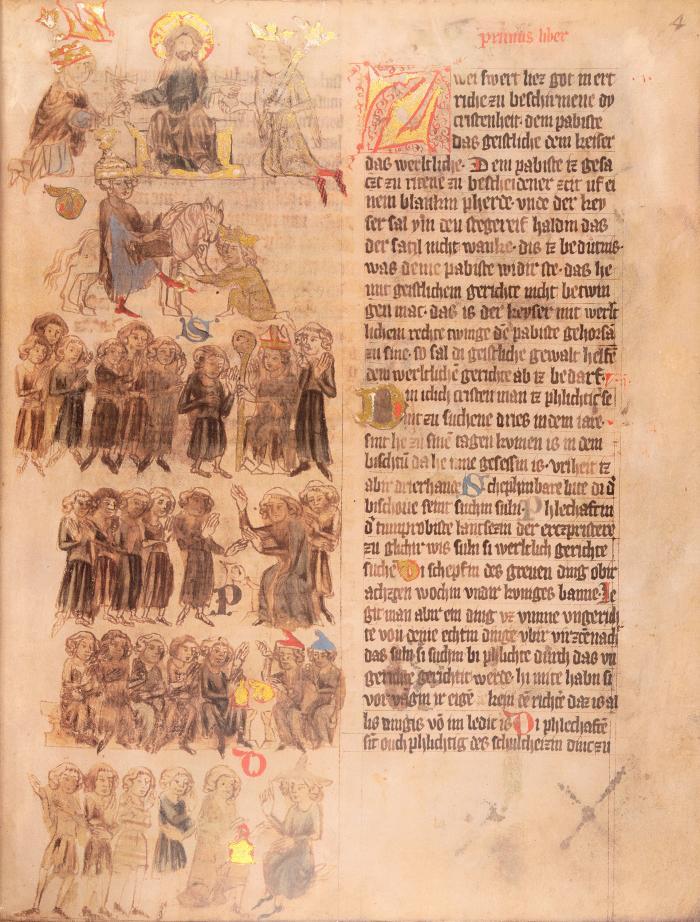 4
primus liber
Zwei swert liez got in ert
riche zu beschirmene dy
cristenheit· dem pabiste
das geistliche dem keiser
das werltliche· Dem pabiste iz gesa
czt zu ritene zu bescheidener zeit uf ei
nem blankin pherde· vnde der key
ser sal ym den stegereif haldin das
der satil nicht wanke· dis iz bedutnis·
was deme pabiste widir ste· das he
mit geistlichem gerichte nicht betwin
gen mac· das is der keyser mit werlt
lichem rechte twinge dē pabiste gehorsā
zu sine· so sal di geistliche gewalt helfē
dem werltlichē gerichte ab iz bedarf·
in iclich cristen man iz phlichtic se
nit zu suchene dries in dem iare·
sint he zu sinē tagen kumen is in dem
bischtū da he inne gesessin is· vriheit iz
abir drierhande Schephinbare lute di d᷑
bischoue senit suchin suln P hlechaftin
d᷑ tumprobiste lantsezin der erczpristere
zu glichir wis suln si werltlich gerichte
suchē Di schepfin des greuen ding obir
achzen wochin vndir kuniges banne· Le
git man abir ein ding vz vmme vngerich
te von deme echtin dinge vbir virzcēnacht
das suln si suchin bi phlichte durch das vn
gerichte gerichtit werde· hi mite habn si
vor ir eigē kein dē richtē daz is al
lis dingis vō im ledic is Di phlechaftē
sit ouch phlichtig des schultheizin dinc zu
S
P
O